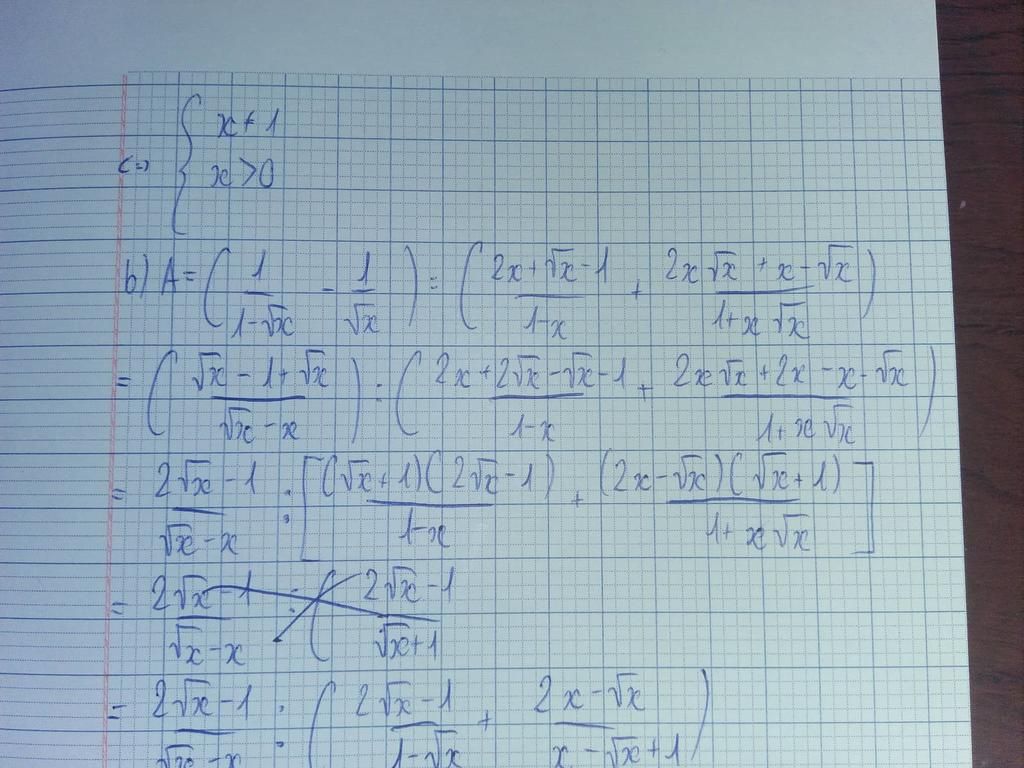 <=> { x ≠ 1
x > 0
b) A = ( 1/(1-√x) - 1/√x ) : ( (2x+√x-1)/(1-x) + (2x√x + x - √x)/(1+x√x) )
= ( (√x - 1 + √x)/(√x - x) ) : ( (2x + 2√x - √x - 1)/(1-x) + (2x√x + 2x - x - √x)/(1+x√x) )
= (2√x - 1)/(√x - x) : [ (√x+1)(2√x-1)/(1-x) + (2x-√x)(√x+1)/(1+x√x) ]
= (2√x - 1)/(√x - x) : ( (2√x - 1)/(√x+1)
= (2√x - 1)/(√x - x) : ( (2√x - 1)/(1-√x) + (2x - √x)/(x - √x + 1) )